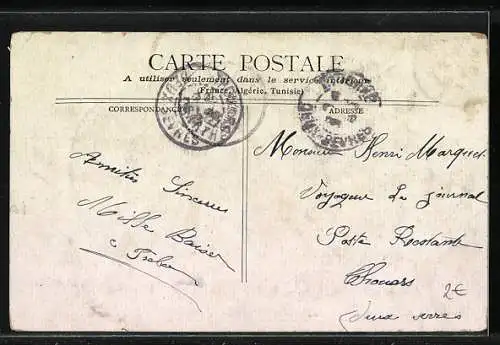 CARTE POSTALE
A utiliser seulement dans le service intérieur
(France, Algérie, Tunisie)
CORRESPONDANCE
ADRESSE
Amitiés Sincères
Mille Baisers
Monsieur Henri Marquet
Voyageur Le journal
Poste Restante
Thouars
Deux Sevres
2€